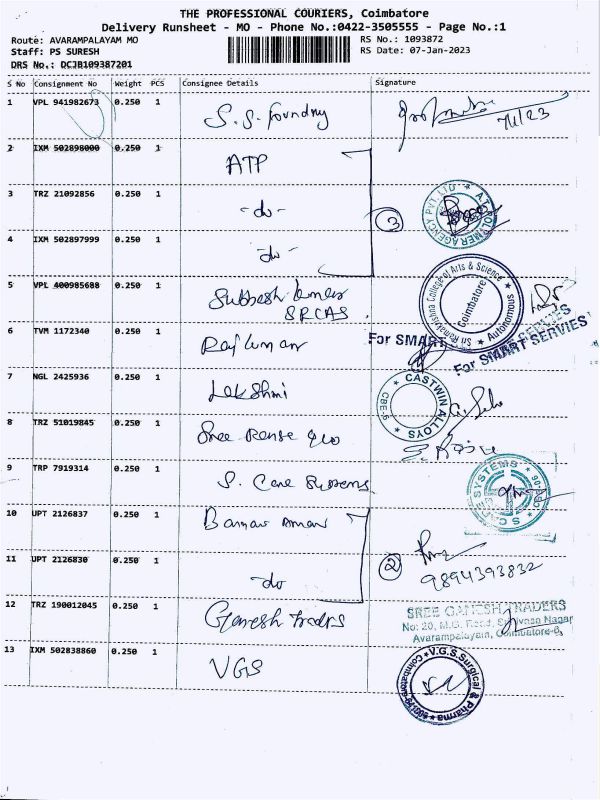 THE PROFESSIONAL COURIERS, Coimbatore
Delivery Runsheet - MO - Phone No.:0422-3505555 - Page No.:1
Route: AVARAMPALAYAM MO
RS No.: 1093872
Staff: PS SURESH
RS Date: 07-Jan-2023
DRS No.: DCJB109387201
S No Consignment No Weight PCS Consignee Details Signature
1 VPL 941982673 0.250 1 S.S. Foundry 7/1/23
2 IXM 502898000 0.250 1 ATP
3 TRZ 21092856 0.250 1 -do- 3
A.T. POLYMER AGENCY PVT. LTD
4 IXM 502897999 0.250 1 -do-
5 VPL 400985688 0.250 1
SRCAS
Sri Ramakrishna College of Arts & Science Coimbatore Autonomous
6 TVM 1172340 0.250 1 Raj Kumar For SMART
For SMART SERVIES
7 NGL 2425936 0.250 1 Lakshmi
CASTWIN ALLOYS CBE-6
8 TRZ 51019845 0.250 1 Sree
9 TRP 7919314 0.250 1 S. Care Systems
S CARE SYSTEMS
10 UPT 2126837 0.250 1
11 UPT 2126830 0.250 1 -do 2
9894393832
12 TRZ 190012045 0.250 1 Ganesh traders
SREE GANESH TRADERS
No: 20, M.G. Road, Nagar
Avarampalayam, Coimbatore-6.
13 IXM 502838860 0.250 1 VGS
V.G.S. Surgical & Pharma Coimbatore